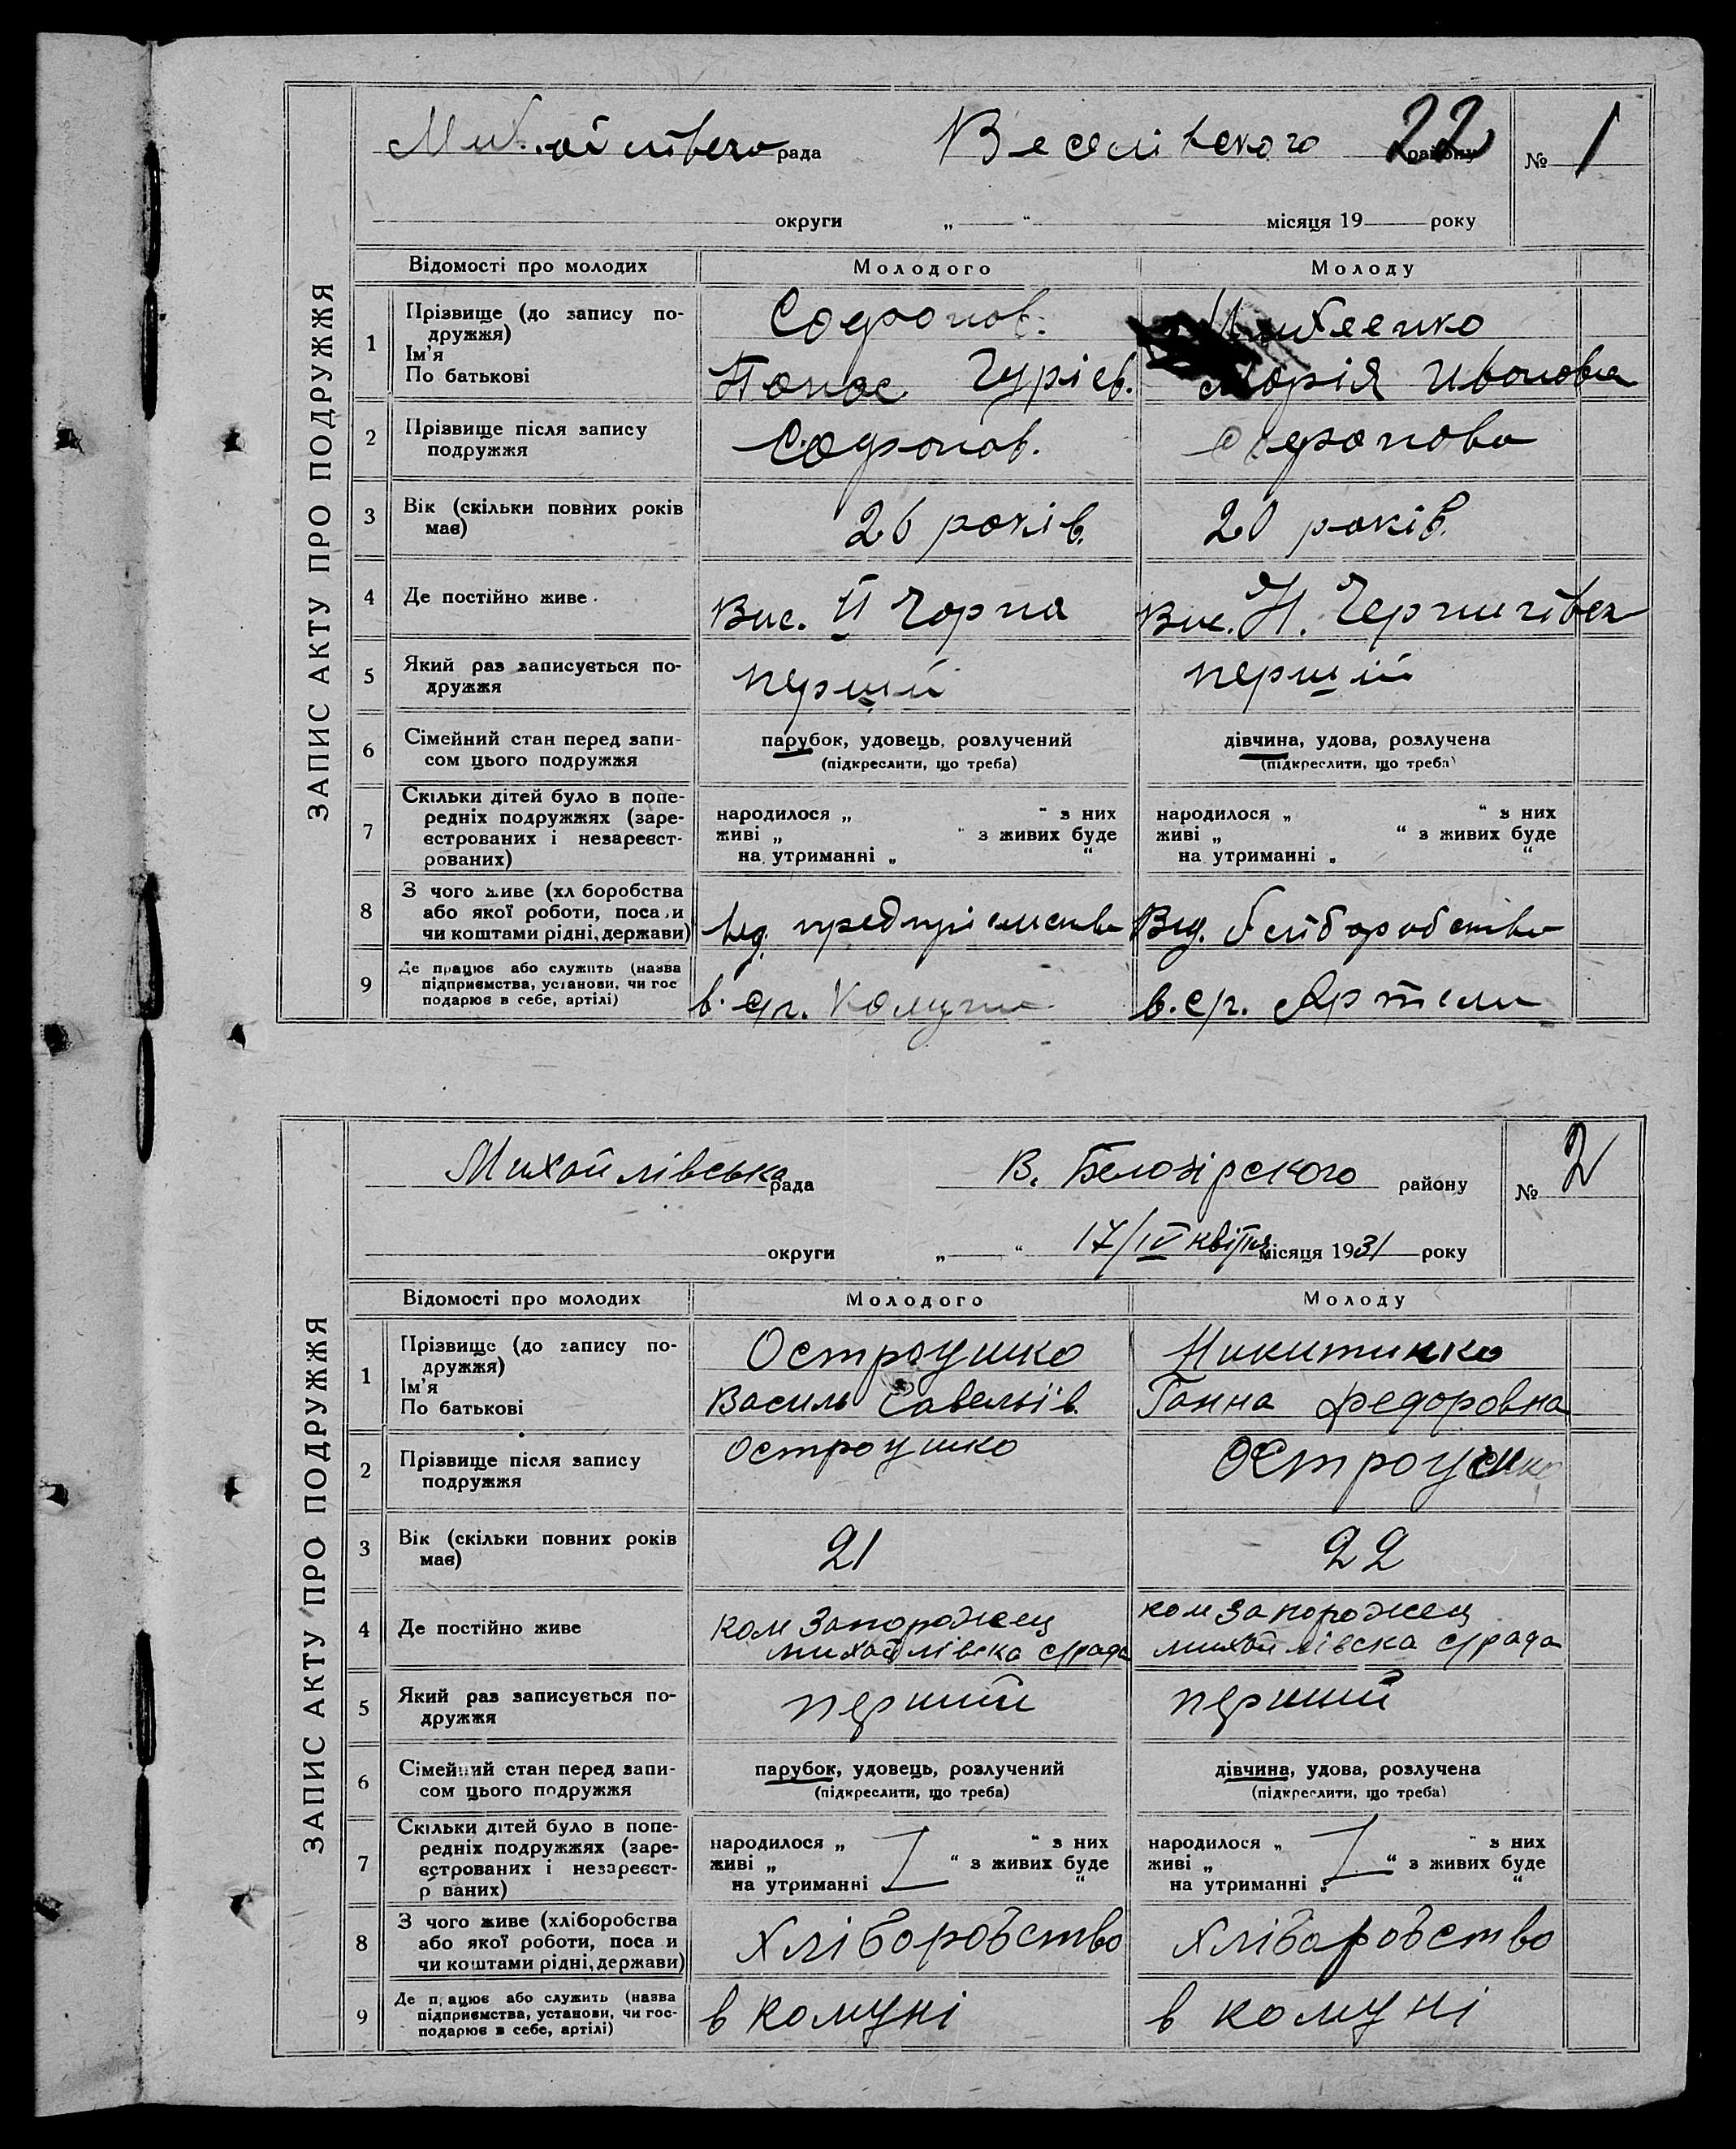 ЗАПИС АКТУ ПРО ПОДРУЖЖЯ
рада Веселівского 22 району № 1
округи „ “ місяця 19 року
Відомості про молодих Молодого Молоду
1 Прізвище (до запису по-
дружжя)
Ім'я
По батькові
Софронов.
Панас Гурієв.
Марія Ивановна
2 Прізвище після запису
подружжя
Софронов. Софронова
3 Вік (скільки повних років
має)
26 років. 20 років.
4 Де постійно живе
Вис. Чорна
Вис. Н. Чернигівка
5 Який раз записується по-
дружжя
перший перший
6 Сімейний стан перед запи-
сом цього подружжя
парубок, удовець, розлучений
(підкреслити, що треба)
дівчина, удова, розлучена
(підкреслити, що треба)
7 Скільки дітей було в попе-
редніх подружжях (заре-
єстрованих і незареєст-
рованих)
народилося „ “ з них
живі „ “ з живих буде
на утриманні „ “
народилося „ “ з них
живі „ “ з живих буде
на утриманні „ “
8 З чого живе (хл боробства
або якої роботи, поса и
чи коштами рідні, держави)
Від. хліборобства
9 Де працює або служить (назва
підприємства, установи, чи гос
подарює в себе, артілі)
в. с/г. Комуни
в. с/г. Артели
ЗАПИС АКТУ ПРО ПОДРУЖЖЯ
Михайлівська рада В. Белозірского району № 2
округи „ “ 17/IV квітня місяця 1931 року
Відомості про молодих Молодого Молоду
1 Прізвище (до запису по-
дружжя)
Ім'я
По батькові
Остроушко
Василь Савельїв.
Никитинко
Ганна Федоровна
2 Прізвище після запису
подружжя
Остроушко Остроушко
3 Вік (скільки повних років
має)
21 22
4 Де постійно живе
ком Запорожец
михайлівска с/рада
ком Запорожец
михайлівска с/рада
5 Який раз записується по-
дружжя
перший перший
6 Сімейний стан перед запи-
сом цього подружжя
парубок, удовець, розлучений
(підкреслити, що треба)
дівчина, удова, розлучена
(підкреслити, що треба)
7 Скільки дітей було в попе-
редніх подружжях (заре-
єстрованих і незареєст-
р ваних)
народилося „ “ з них
живі „ “ з живих буде
на утриманні „ “
народилося „ “ з них
живі „ “ з живих буде
на утриманні „ “
8 З чого живе (хліборобства
або якої роботи, поса и
чи коштами рідні, держави)
Хліборобство Хліборобство
9 Де п ацює або служить (назва
підприємства, установи, чи гос-
подарює в себе, артілі)
в комуні в комуні